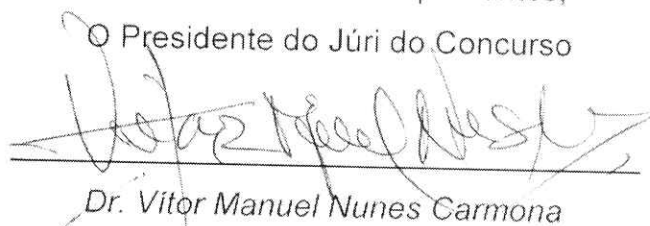 O Presidente do Júri do Concurso
Dr. Vítor Manuel Nunes Carmona